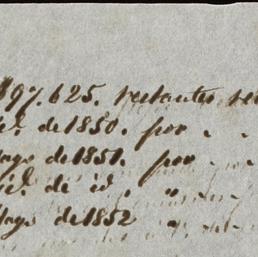 $97.625. restantes se
de 1850. por " "
Mayo de 1851. por "
de id. "
Mayo de 1852 "